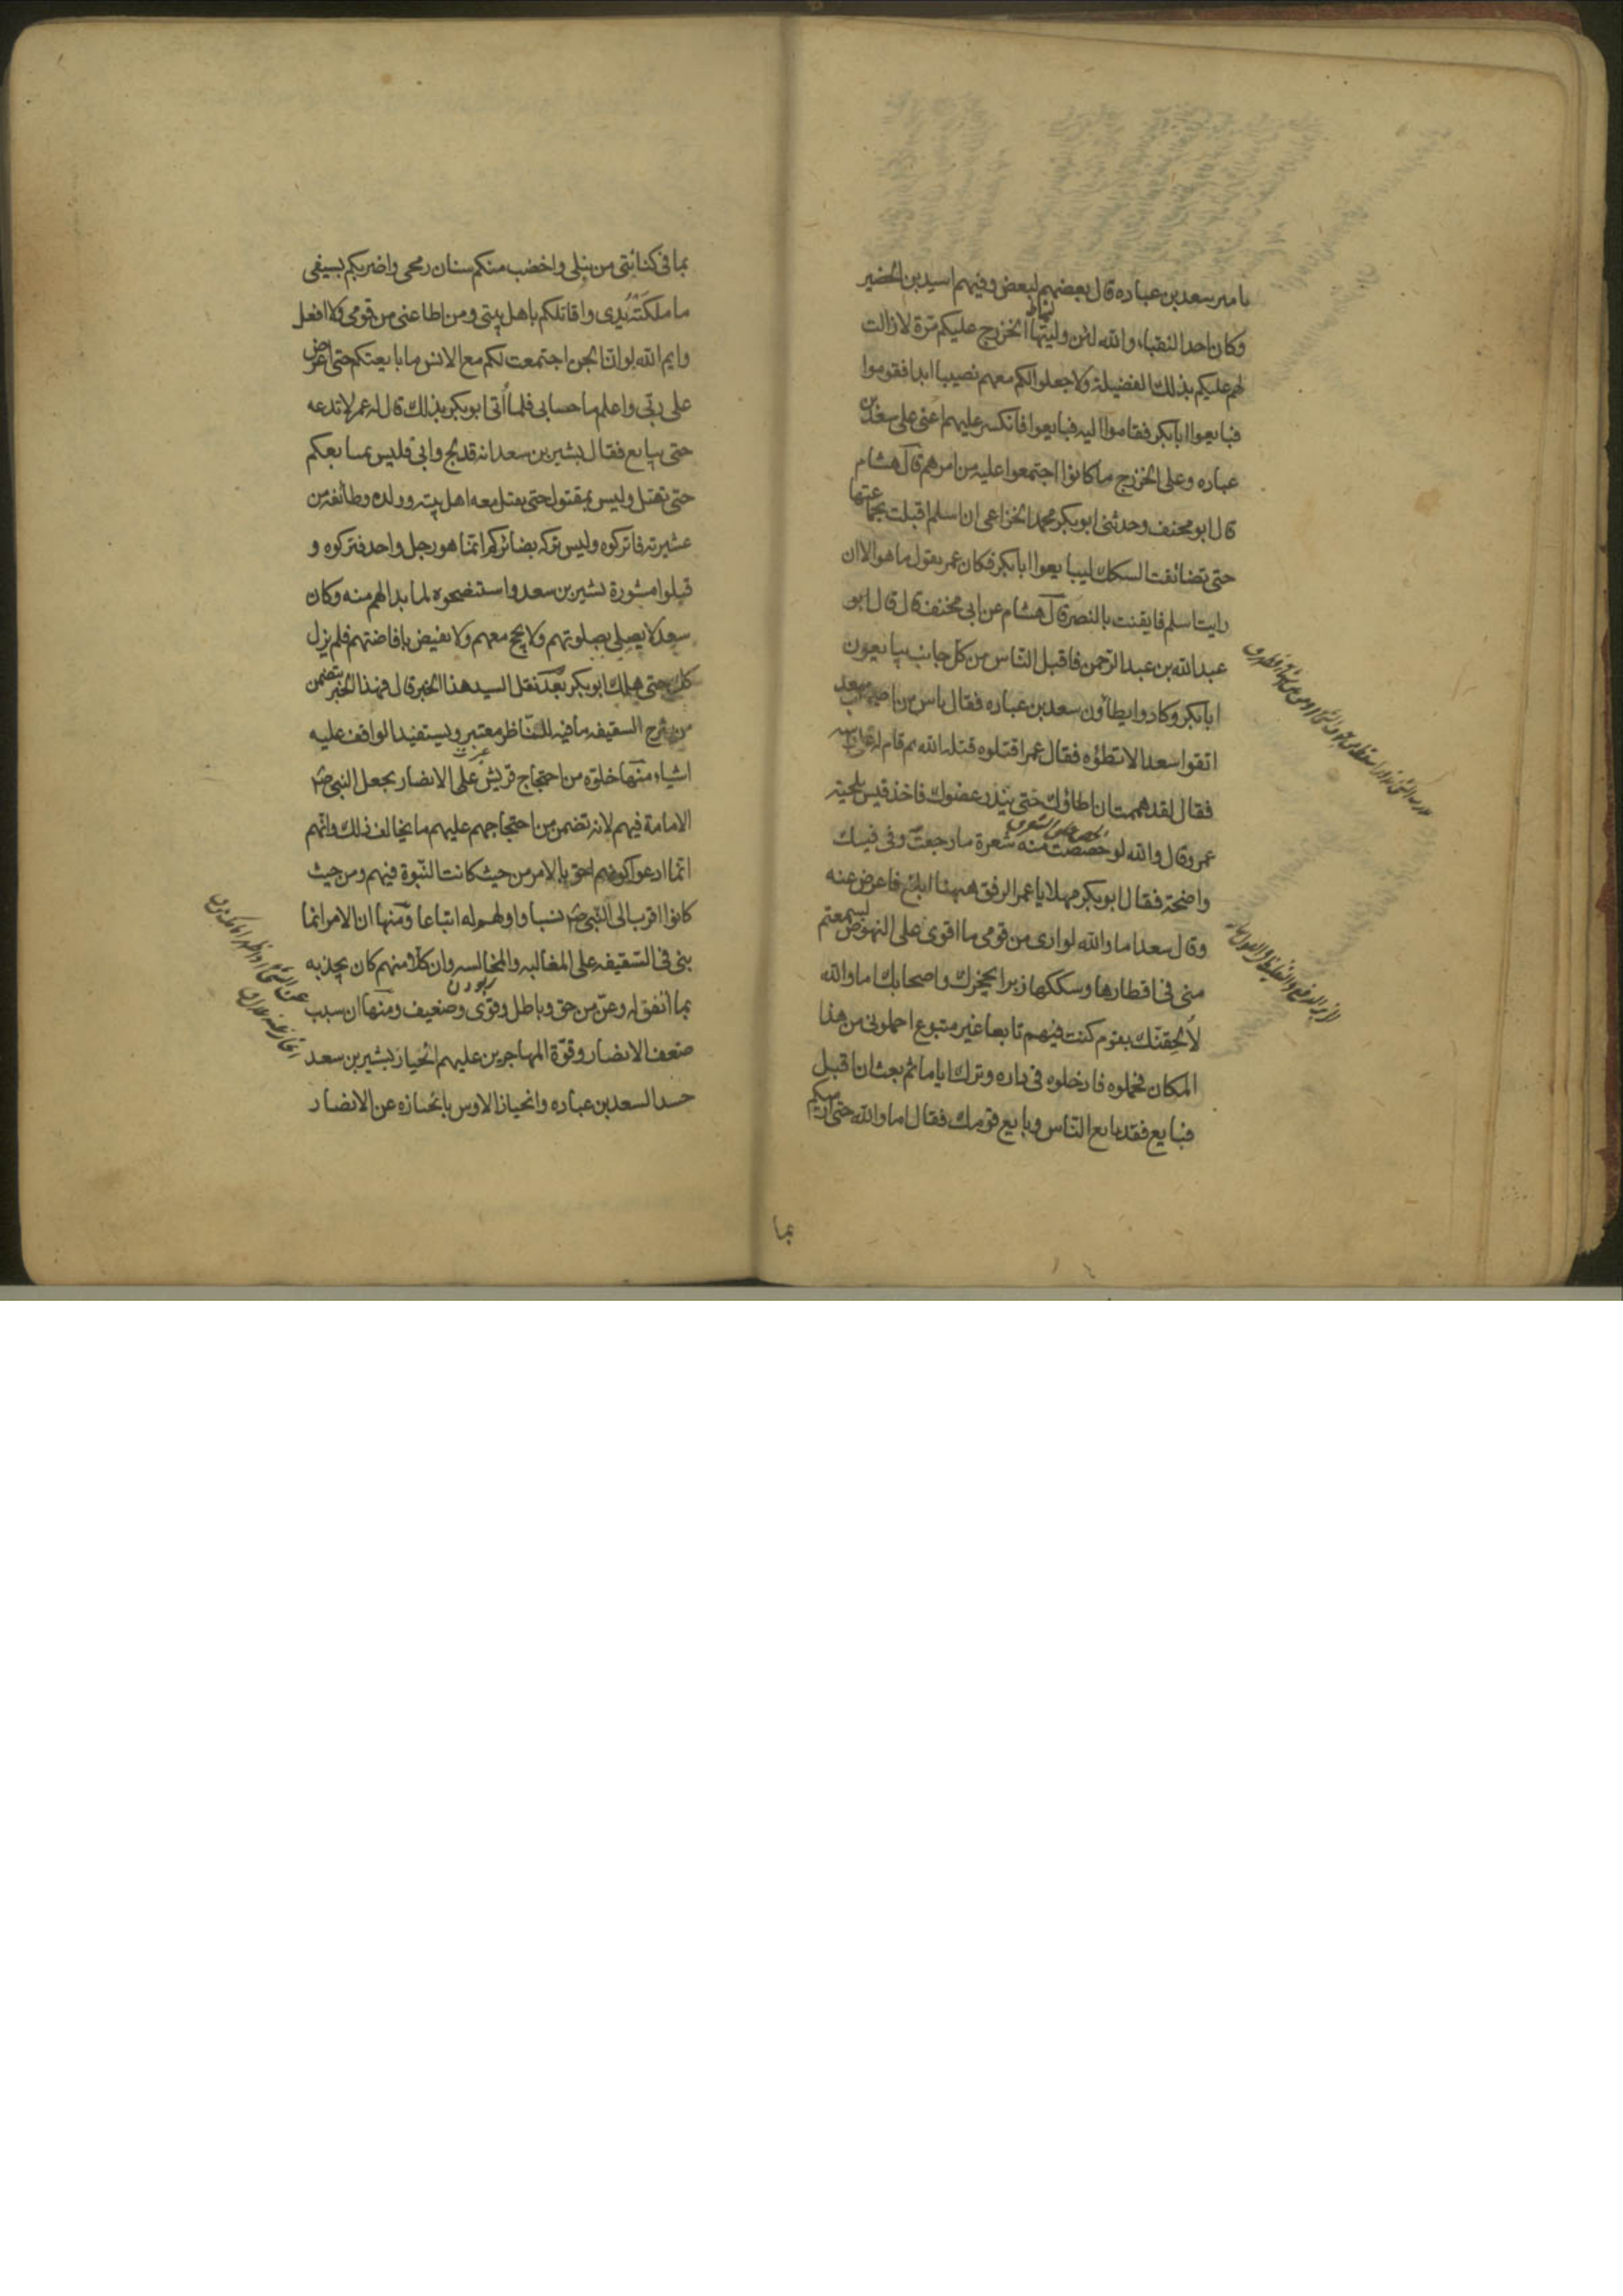 تأمير سعد بن عباده قال بعضهم لبعض وفيهم اسيد بن الحضير
وكان احد النقباء والله لئن وليتها الخزرج عليكم مرة لازالت
لهم عليكم بذلك الفضيلة ولا جعلوا لكم معهم نصيبا ابدا فقوموا
فبايعوا ابابكر فقاموا اليه فبايعوا فانكسر عليهم اعنى على سعد بن
عباده وعلى الخزرج ما كانوا اجتمعوا عليه من امرهم قال هشام
قال ابو مخنف وحدثنى ابو بكر محمد الخزاعى ان اسلم اقبلت بجماعتها
حتى تضائقت السكك ليبايعوا ابابكر فكان عمر يقول ما هو الا ان
رايت اسلم فايقنت بالنصر قال هشام عن ابى مخنف قال قال ابو
عبد الله بن عبد الرحمن فاقبل الناس من كل جانب يبايعون
ابابكر وكادوا يطأون سعد بن عباده فقال ناس من اصحاب سعد
اتقوا سعدا لا تطؤه فقال عمر اقتلوه قتله الله ثم قام على راسه
فقال لقد هممت ان اطأوك حتى يندر عضوك فاخذ قيس بلحية
عمر وقال والله لو حصصت منه شعرة ما رجعت وفى فيك
واضحة فقال ابو بكر مهلا يا عمر الرفق ههنا ابلغ فاعرض عنه
وقال سعد اما والله لو ارى من قومى ما اقوى على النهوض لسمعتم
منى فى اقطارها وسككها زيرا يحجزك واصحابك اما والله
لألحقنك بقوم كنت فيهم تابعا غير متبوع احملونى من هذا
المكان فحملوه فادخلوه فى داره وترك اياما ثم بعث ان اقبل
فبايع فقد بايع الناس وبايع قومك فقال اما والله حتى ارميكم
بما
بما فى كنانتى من نبلى واخضب منكم سنان رمحى واضربكم بسيفى
ما ملكته يدى واقاتلكم باهل بيتى ومن اطاعنى من قومى ولا افعل
وايم الله لو ان الجن اجتمعت لكم مع الانس ما بايعتكم حتى اعرض
على ربى واعلم ما حسابى فلما أتى ابو بكر بذلك قال له عمر لا تدعه
حتى يبايع فقال بشير بن سعد انه قد لج وابى فليس يبايعكم
حتى يقتل وليس بمقتول حتى يقتل معه اهل بيته وولده وطائفة من
عشيرته فاتركوه وليس تركه بضائركم انما هو رجل واحد فتركوه و
قبلوا مشورة بشير بن سعد واستنصحوه لما بدا لهم منه وكان
سعد لا يصلى بصلوتهم ولا يحج معهم ولا يفيض بافاضتهم فلم يزل
كك حتى هلك ابو بكر بعد نقل السيد هذا الخبر قال فهذا الخبر يتضمن
من شرح السقيفه ما فيه للناظر معتبر ويستفيد الواقف عليه
اشياء منها خلوه من احتجاج قريش على الانصار بجعل النبى ص
الامامة فيهم لانه تضمن من احتجاجهم عليهم ما يخالف ذلك وانهم
انما ادعوا كونهم احق بالامر من حيث كانت النبوة فيهم ومن حيث
كانوا اقرب الى النبى ص نسبا واولهم له اتباعا ومنها ان الامر انما
بنى فى السقيفه على المغالبه والمخالسه وان كلا منهم كان يجذبه
بما اتفق له وعن من حق وباطل وقوى وضعيف ومنها ان سبب
ضعف الانصار وقوة المهاجرين عليهم انحياز بشير بن سعد
حسدا لسعد بن عباده وانحياز الاوس بانحيازه عن الانصار